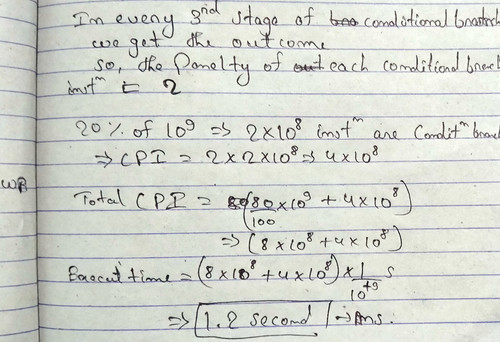 In every 3rd stage of conditional branch
we get the outcome
so, the Penelty of each conditional branch
instn = 2
20% of 10⁹ => 2×10⁸ instn are Conditn branc
=> CPI = 2×2×10⁸ => 4×10⁸
WB
Total CPI = (80/100 ×10⁹ + 4×10⁸)
=> (8×10⁸ + 4×10⁸)
Execut time = (8×10⁸ + 4×10⁸) × 1/10⁺⁹ s
=> 1.2 second -> Ans.